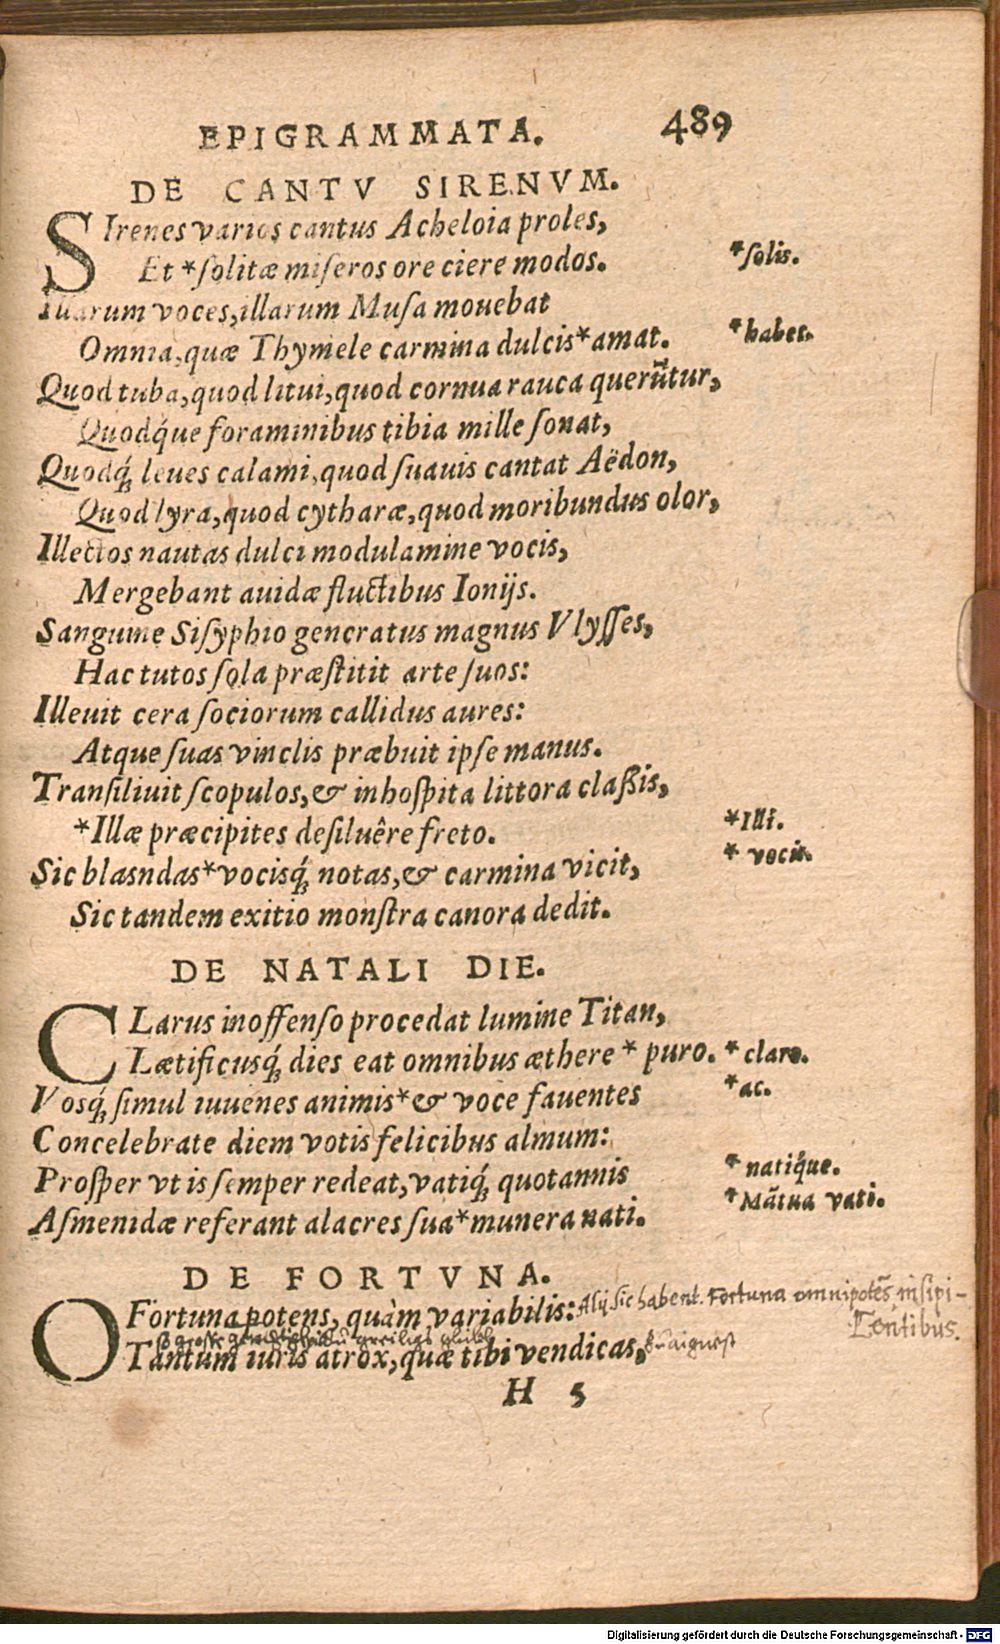 EPIGRAMMATA. 489
DE CANTV SIRENVM.
SIrenes varios cantus Acheloia proles,
Et *ſolitæ miſeros ore ciere modos. *ſolis.
Illarum voces, illarum Muſa mouebat
Omnia, quæ Thymele carmina dulcis* amat. *habet.
Quod tuba, quod litui, quod cornua rauca querũtur,
Quodq́ue foraminibus tibia mille ſonat,
Quodq́; leues calami, quod ſuauis cantat Aëdon,
Quod lyra, quod cytharæ, quod moribundus olor,
Illectos nautas dulci modulamine vocis,
Mergebant auidæ fluctibus Ionijs.
Sanguine Siſyphio generatus magnus Vlyſſes,
Hac tutos ſola præſtitit arte ſuos:
Illeuit cera ſociorum callidus aures:
Atque ſuas vinclis præbuit ipſe manus.
Tranſiliuit ſcopulos, & inhoſpita littora claßis,
*Illæ præcipites deſiluêre freto. *Illi.
Sic blasndas* vocisq́; notas, & carmina vicit, * vocis.
Sic tandem exitio monſtra canora dedit.
DE NATALI DIE.
CLarus inoffenſo procedat lumine Titan,
Lætificusq́; dies eat omnibus æthere * puro. * claro.
Vosq́; ſimul iuuenes animis* & voce fauentes *ac.
Concelebrate diem votis felicibus almum:
Proſper vt is ſemper redeat, vatiq́; quotannis * natiq́ue.
Aſmenidæ referant alacres ſua* munera nati. *Mãtua vati.
DE FORTVNA.
O Fortuna potens, quàm variabilis: Alij sic habent. Fortuna omnipotẽs insipi-
entibus.
Tantum iuris atrox, quæ tibi vendicas,
H 5
Digitalisierung gefördert durch die Deutsche Forschungsgemeinschaft - DFG